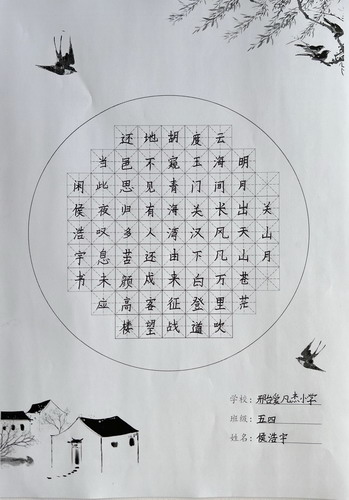 关山月
明月出天山苍茫
云海间长风几万里吹
度玉门关汉下白登道
胡窥青海湾由来征战
地不见有人还戍客望
还邑思归多苦颜高楼
当此夜叹息未应
闲侯浩宇书
学校：小学
班级：五四
姓名：侯浩宇